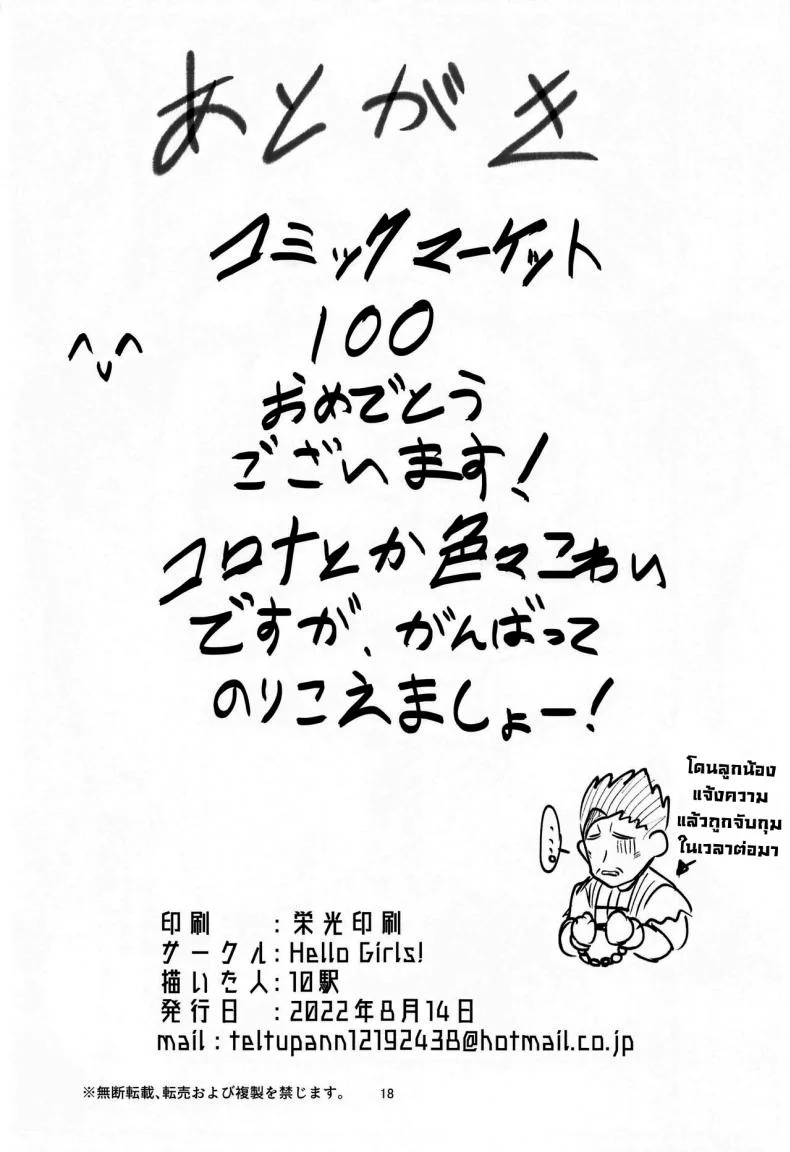 あとがき
コミックマーケット
100
おめでとう
ございます!
コロナとか色々こわい
ですが、がんばって
のりこえましょー!
โดนลูกน้อง
แจ้งความ
แล้วถูกจับกุม
ในเวลาต่อมา
印刷 : 栄光印刷
サークル : Hello Girls!
描いた人 : 10駅
発行日 : 2022年8月14日
mail : teltupann12192438@hotmail.co.jp
※無断転載、転売および複製を禁じます。 18